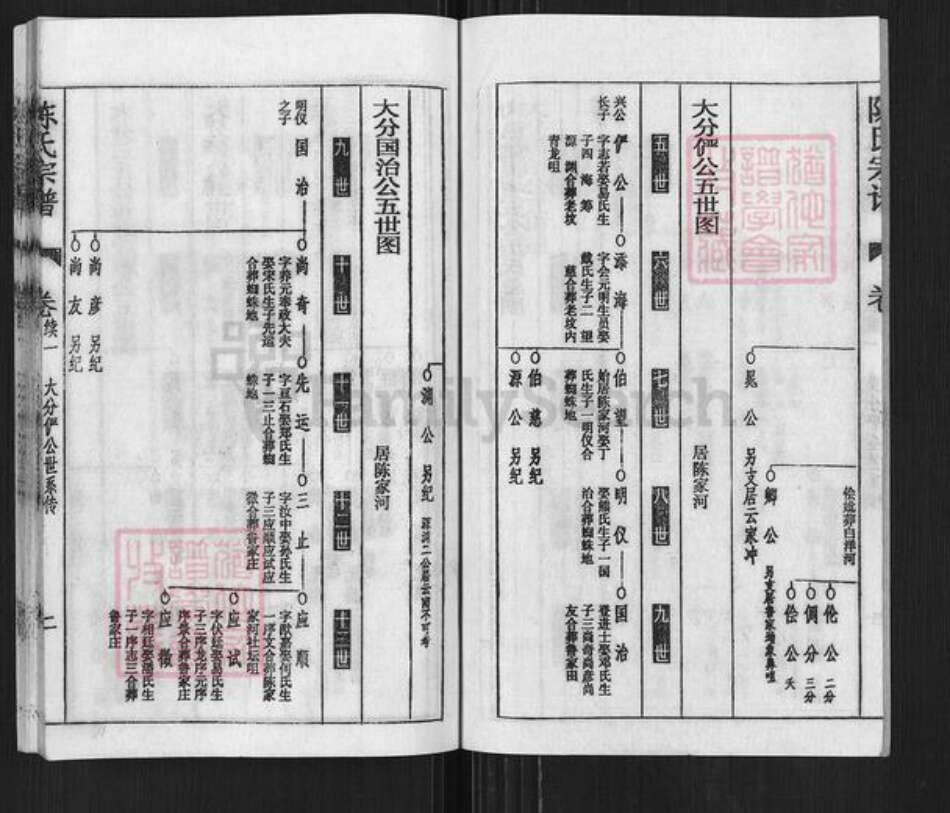 陈氏宗谱
卷
伦公 二分
侗分 三分
佺公 夭
卿公
晁公 另支居云家冲
大分俨公五世图
居陈家河
五世
六世
七世
八世
九世
兴公长子
俨公
字志若娶易氏生
子四 海 筹
源 渊合葬老坟
青龙咀
添海
字会元明生员娶
戴氏生子二 望
慈合葬老坟内
伯望
始居陈家河娶丁
氏生子一明仪合
葬蜘蛛地
明仪
娶熊氏生子一国
治合葬蜘蛛地
国治
登进士娶邓氏生
子三尚奇尚彦尚
友合葬鲁家田
伯慈 另纪
源公 另纪
渊公 另纪
大分国治公五世图
居陈家河
九世
十世
十一世
十二世
十三世
明仪之子
国治
尚奇
字养元奉政大夫
娶宋氏生子先运
合葬蜘蛛地
先运
字亘石娶郑氏生
子一三止合葬蜘
蛛地
三止
字汝中娶孙氏生
子三应顺应试应
徵合葬鲁家庄
应顺
字猷嘉娶何氏生
一序文合葬陈家
家河社坛咀
应试
字伏廷娶易氏生
子三序龙序元序
序景合葬鲁家庄
应徵
字相廷娶潘氏生
子一序志三合葬
鲁家庄
尚彦 另纪
尚友 另纪
陈氏宗谱
卷续一
大分俨公世系传
二
FamilySearch